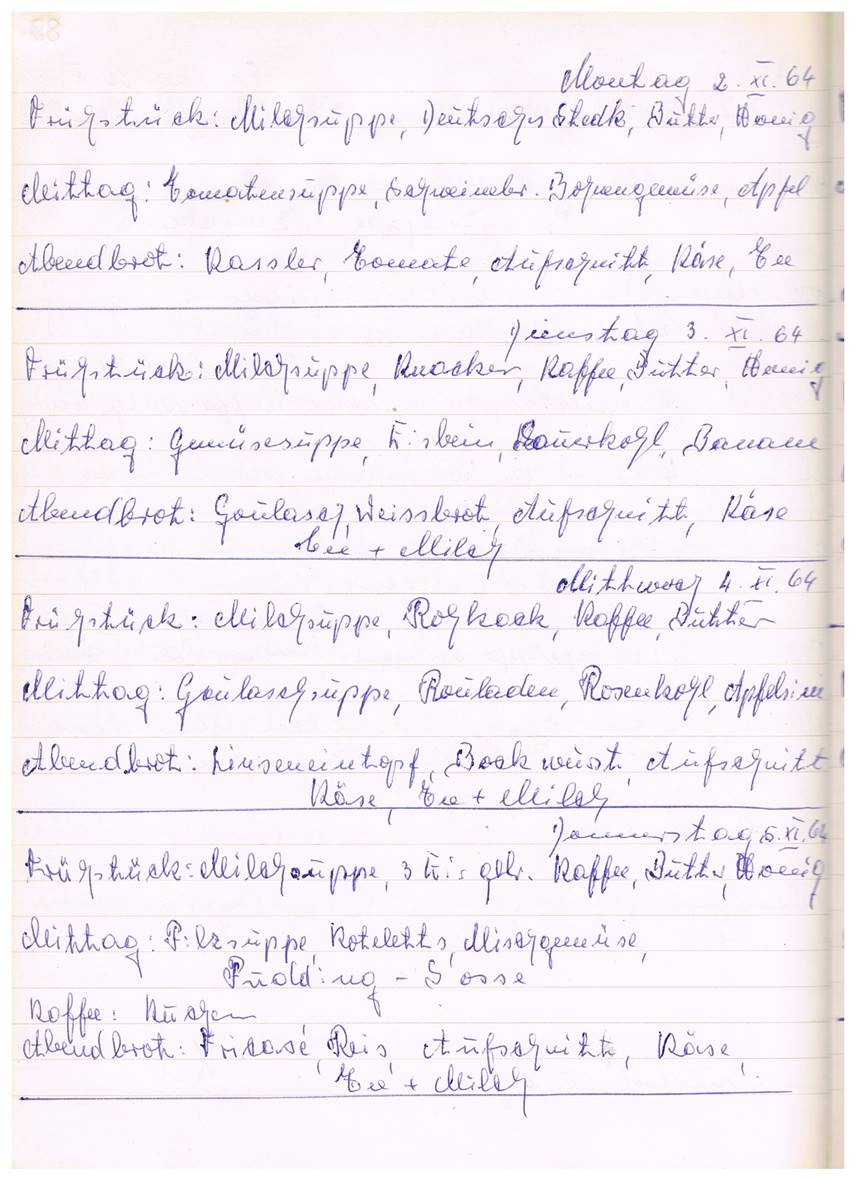 Montag 2. XI. 64
Frühstück: Milchsuppe, Deutsches Stedk, Butter, Honig
Mittag: Tomatensuppe, Schweinebr. Bohnengemüse, Apfel
Abendbrot: Kassler, Tomate, Aufschnitt, Käse, Tee
Dienstag 3. XI. 64
Frühstück: Milchsuppe, Knacker, Kaffee, Butter, Honig
Mittag: Gemüsesuppe, Eisbein, Sauerkohl, Banane
Abendbrot: Goulasch, Weissbrot, Aufschnitt, Käse
Tee + Milch
Mittwoch 4. XI. 64
Frühstück: Milchsuppe, Kaffee, Butter
Mittag: Goulaschsuppe, Rouladen, Rosenkohl, Apfelsine
Abendbrot: Linseneintopf, Bockwurst, Aufschnitt
Käse, Tee + Milch
Donnerstag 5. XI. 64
Frühstück: Milchsuppe, 3 Eis gebr. Kaffee, Butter, Honig
Mittag: Pilzsuppe, Koteletts, Mischgemüse,
Pudding - Sosse
Kaffee: Kuchen
Abendbrot: Fricasé, Reis, Aufschnitt, Käse,
Tee + Milch